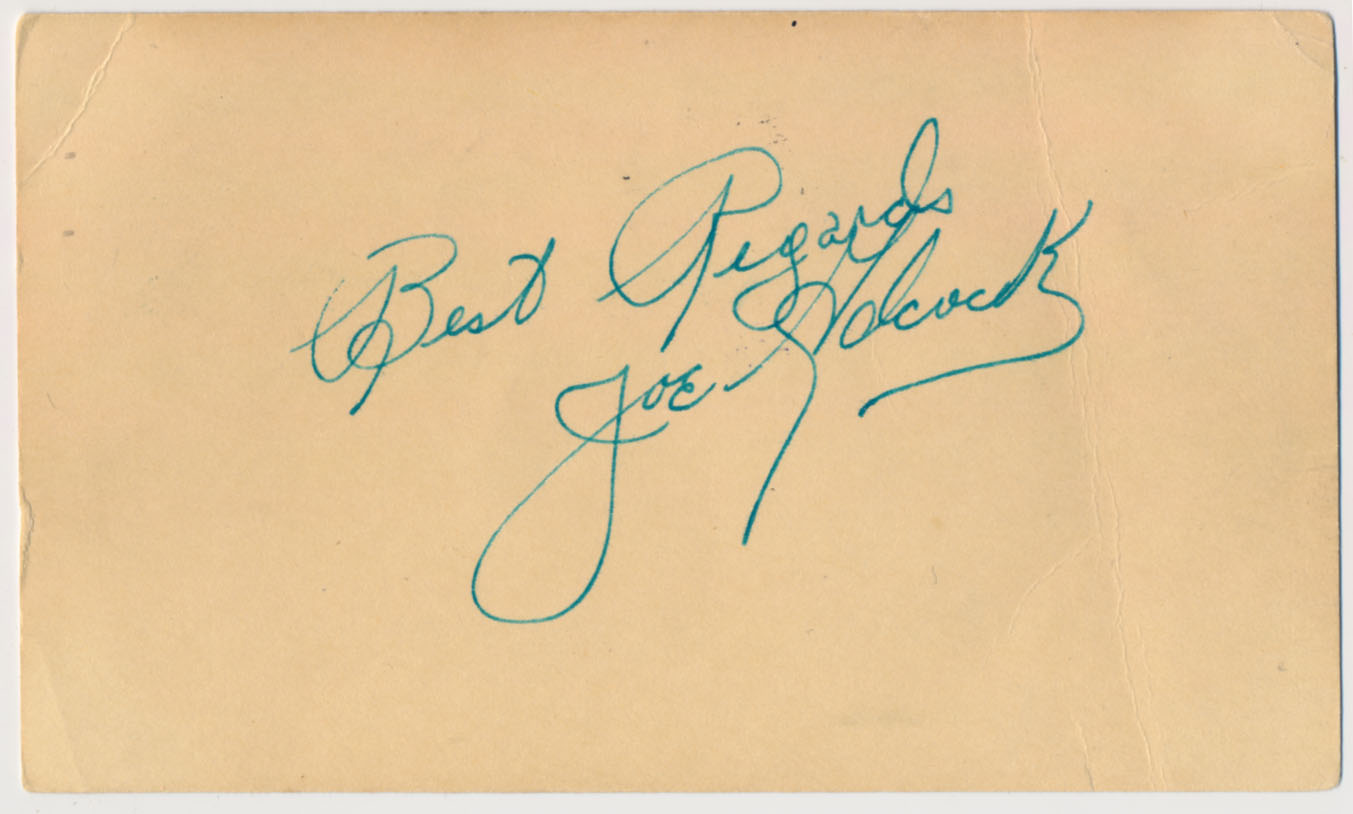 Best Regards
Joe Adcock